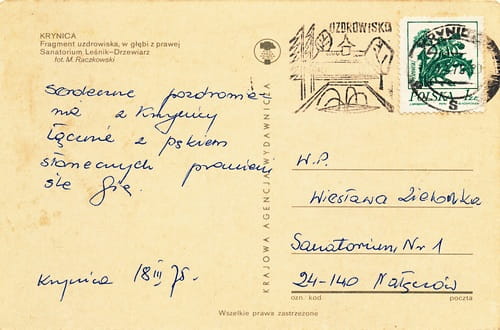 KRYNICA
Fragment uzdrowiska, w głębi z prawej
Sanatorium Leśnik-Drzewiarz
fot. M. Raczkowski
Serdeczne pozdrowie-
nia z Krynicy
łącznie z pękiem
słonecznych promieni
śle
Krynica 18 III 75.
KRAJOWA AGENCJA WYDAWNICZA
UZDROWISKO
KRYNICA
POLSKA
W.P.
Wiesława Zielonka
Sanatorium Nr 1
24-140 Nałęczów
ozn. kod
poczta
Wszelkie prawa zastrzeżone